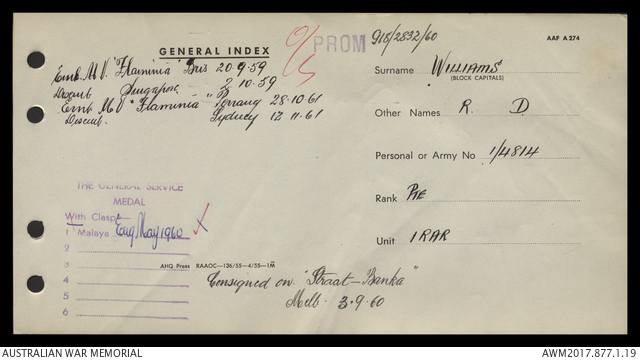 GENERAL INDEX
PROM
918/2832/60
AAF A 274
Emb. M.V. "Flaminia" Bris 20.9.59
Disemb Singapore 2.10.59
Emb M.V "Flaminia" 28.10.61
Disemb. Sydney 12.11.61
Surname WILLIAMS
(BLOCK CAPITALS)
Other Names R. D.
Personal or Army No 1/4814
Rank PTE
Unit 1 RAR
THE GENERAL SERVICE
MEDAL
With Clasp
1 Malaya Enq May 1960 X
2
3
4
5
6
AHQ Press RAAOC—136/55—4/55—1M
Consigned on "Straat-Banka"
Melb. 3.9.60
AUSTRALIAN WAR MEMORIAL
AWM2017.877.1.19